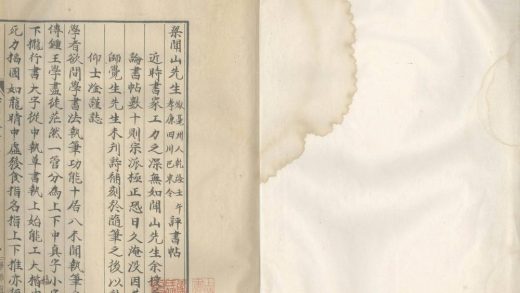 梁聞山先生 亳州人乾隆壬午 孝廉四川巴東令 評書帖
近時書家工力之深無如聞山先生余
論書帖數十則宗派極正恐日久淹没因
師覺生先生未刋詩稿刻於隨筆之後以
仰士陰謹誌
學者欲問學書法執筆功能十居八未聞執筆
傳鍾王學盡徒茫然一管分為上下中真字小
下攏行書大字從中執草書執上始能工大指
死力搦圓如龍睛中虛發食指名指上下推亦